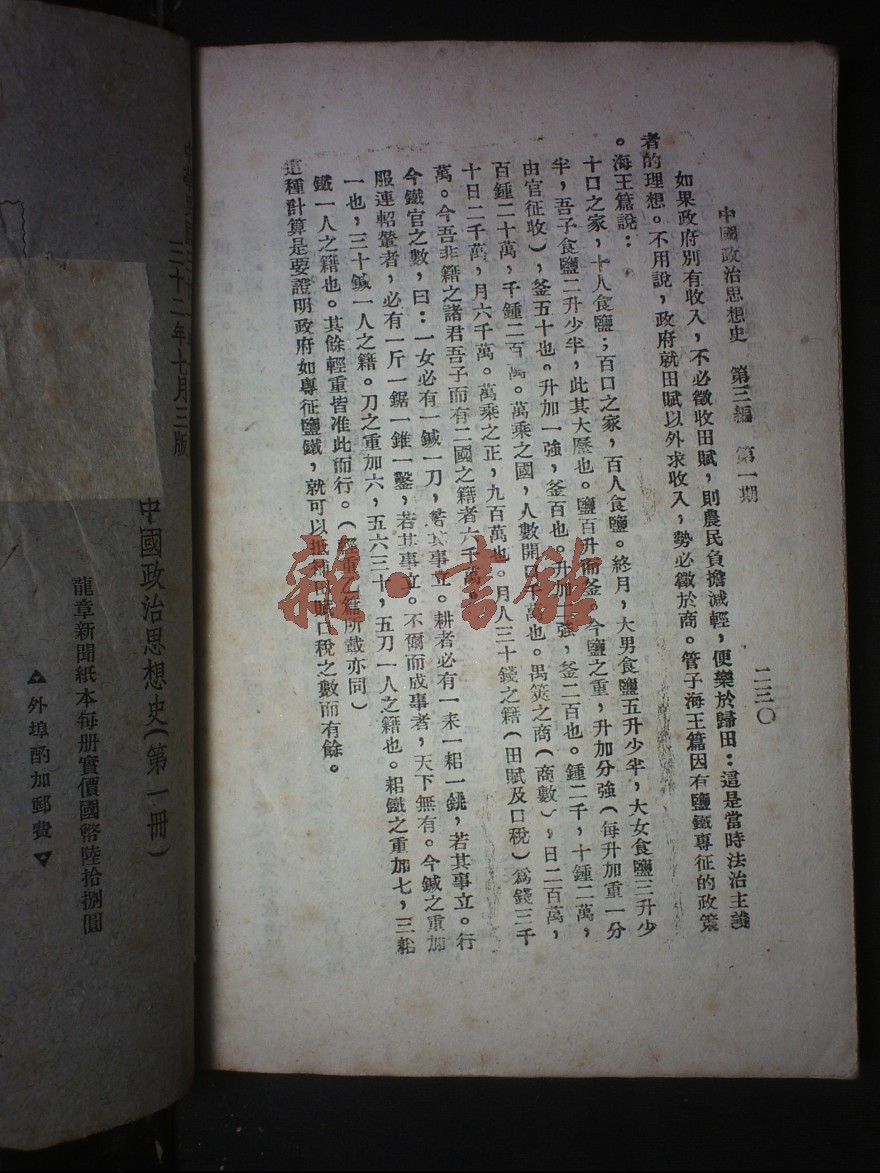 中國政治思想史　第三編　第一期　二三〇
如果政府別有收入，不必徵收田賦，則農民負擔減輕，便樂於歸田：這是當時法治主義
者的理想。不用說，政府就田賦以外求收入，勢必徵於商。管子海王篇因有鹽鐵專征的政策
。海王篇說：
十口之家，十人食鹽；百口之家，百人食鹽。終月，大男食鹽五升少半，大女食鹽三升少
半，吾子食鹽二升少半，此其大歷也。鹽百升而釜，今鹽之重，升加分強（每升加重一分
由官征收），釜五十也。升加一強，釜百也。升加二強，釜二百也。鍾二千，十鍾二萬，
百鍾二十萬，千鍾二百萬。萬乘之國，人數開口千萬也。禺筴之商（商數），日二百萬，
十日二千萬，月六千萬。萬乘之正，九百萬也。月人三十錢之籍（田賦及口稅）爲錢三千
萬。今吾非籍之諸君吾子而有二國之籍者六千萬。
今鐵官之數，曰：一女必有一鍼一刀，若其事立。耕者必有一耒一耜一銚，若其事立。行
服連軺輂者，必有一斤一鋸一錐一鑿，若其事立。不爾而成事者，天下無有。今鍼之重加
一也，三十鍼一人之籍。刀之重加六，五六三十，五刀一人之籍也。耜鐵之重加七，三耜
鐵一人之籍也。其餘輕重皆准此而行。（輕重乙篇所載亦同）
這種計算是要證明政府如專征鹽鐵，就可以抵補田賦口稅之數而有餘。
雜·書館
三十二年十月三版
中國政治思想史（第一冊）
龍章新聞紙本每册實價國幣陸拾捌圓
▲外埠酌加郵費▼